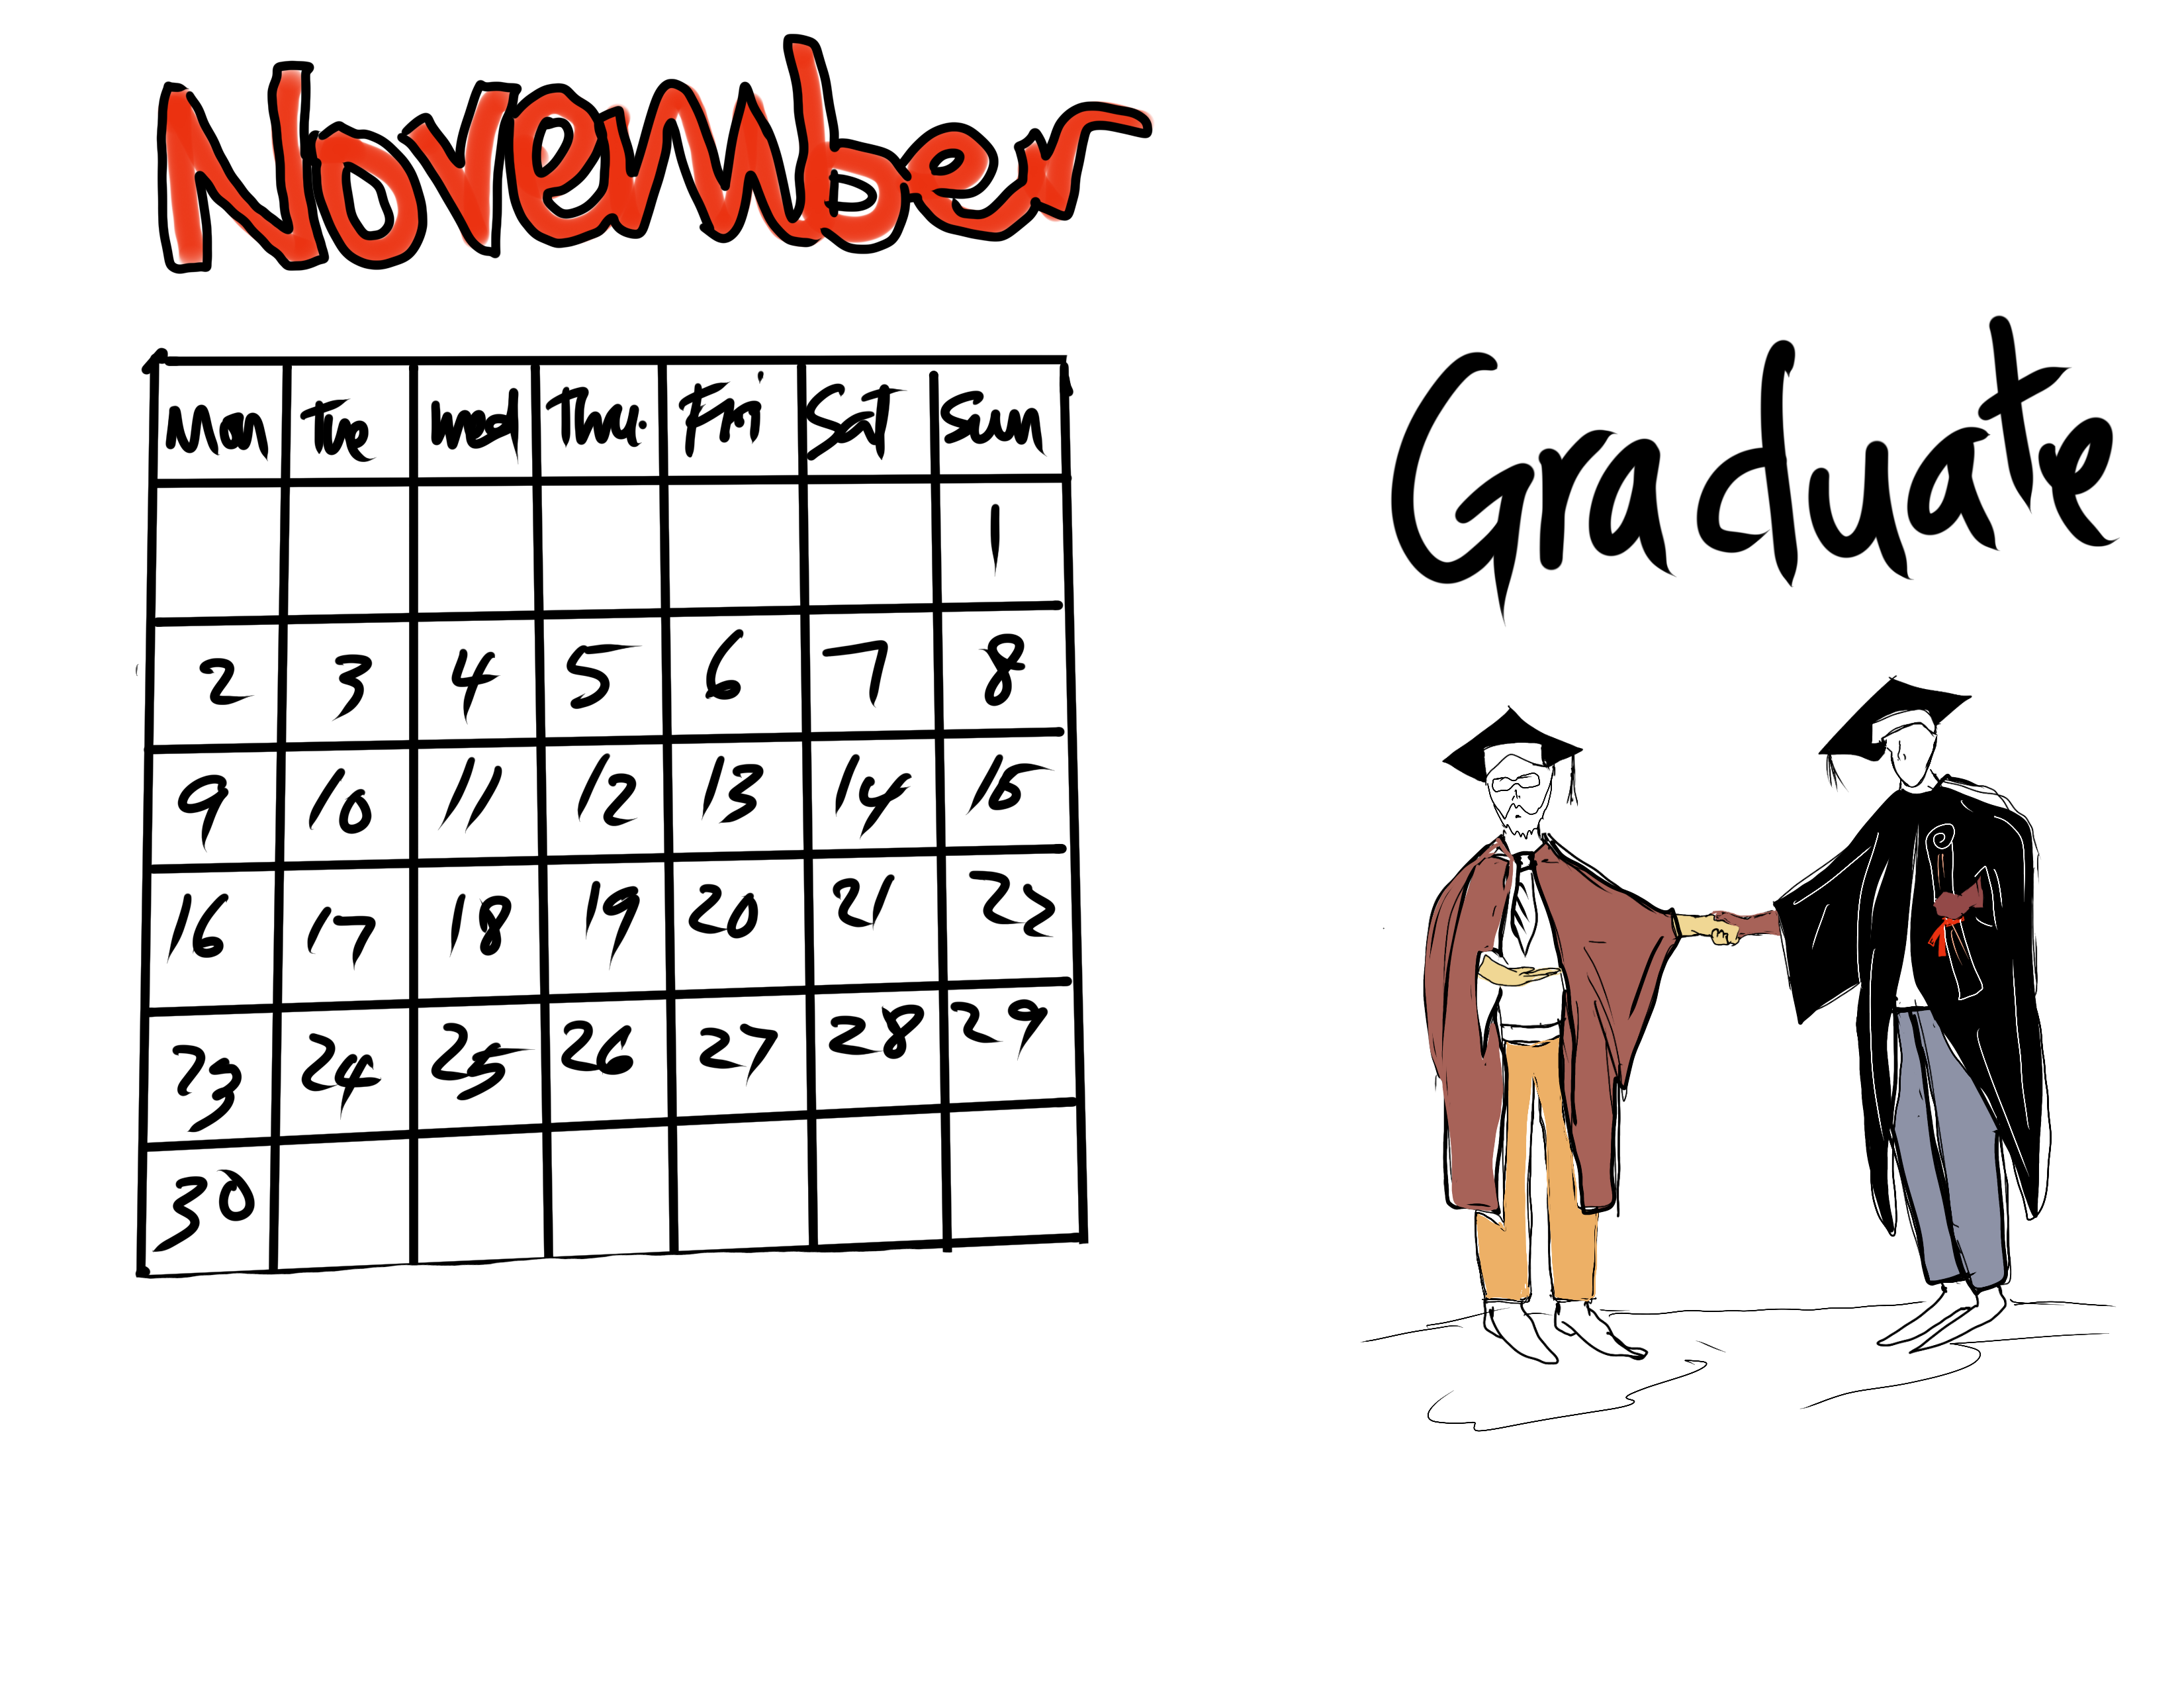 November
Graduate
Mon Tue Wed Thu. Fri Sat Sun
1
2 3 4 5 6 7 8
9 10 11 12 13 14 15
16 17 18 19 20 21 22
23 24 25 26 27 28 29
30